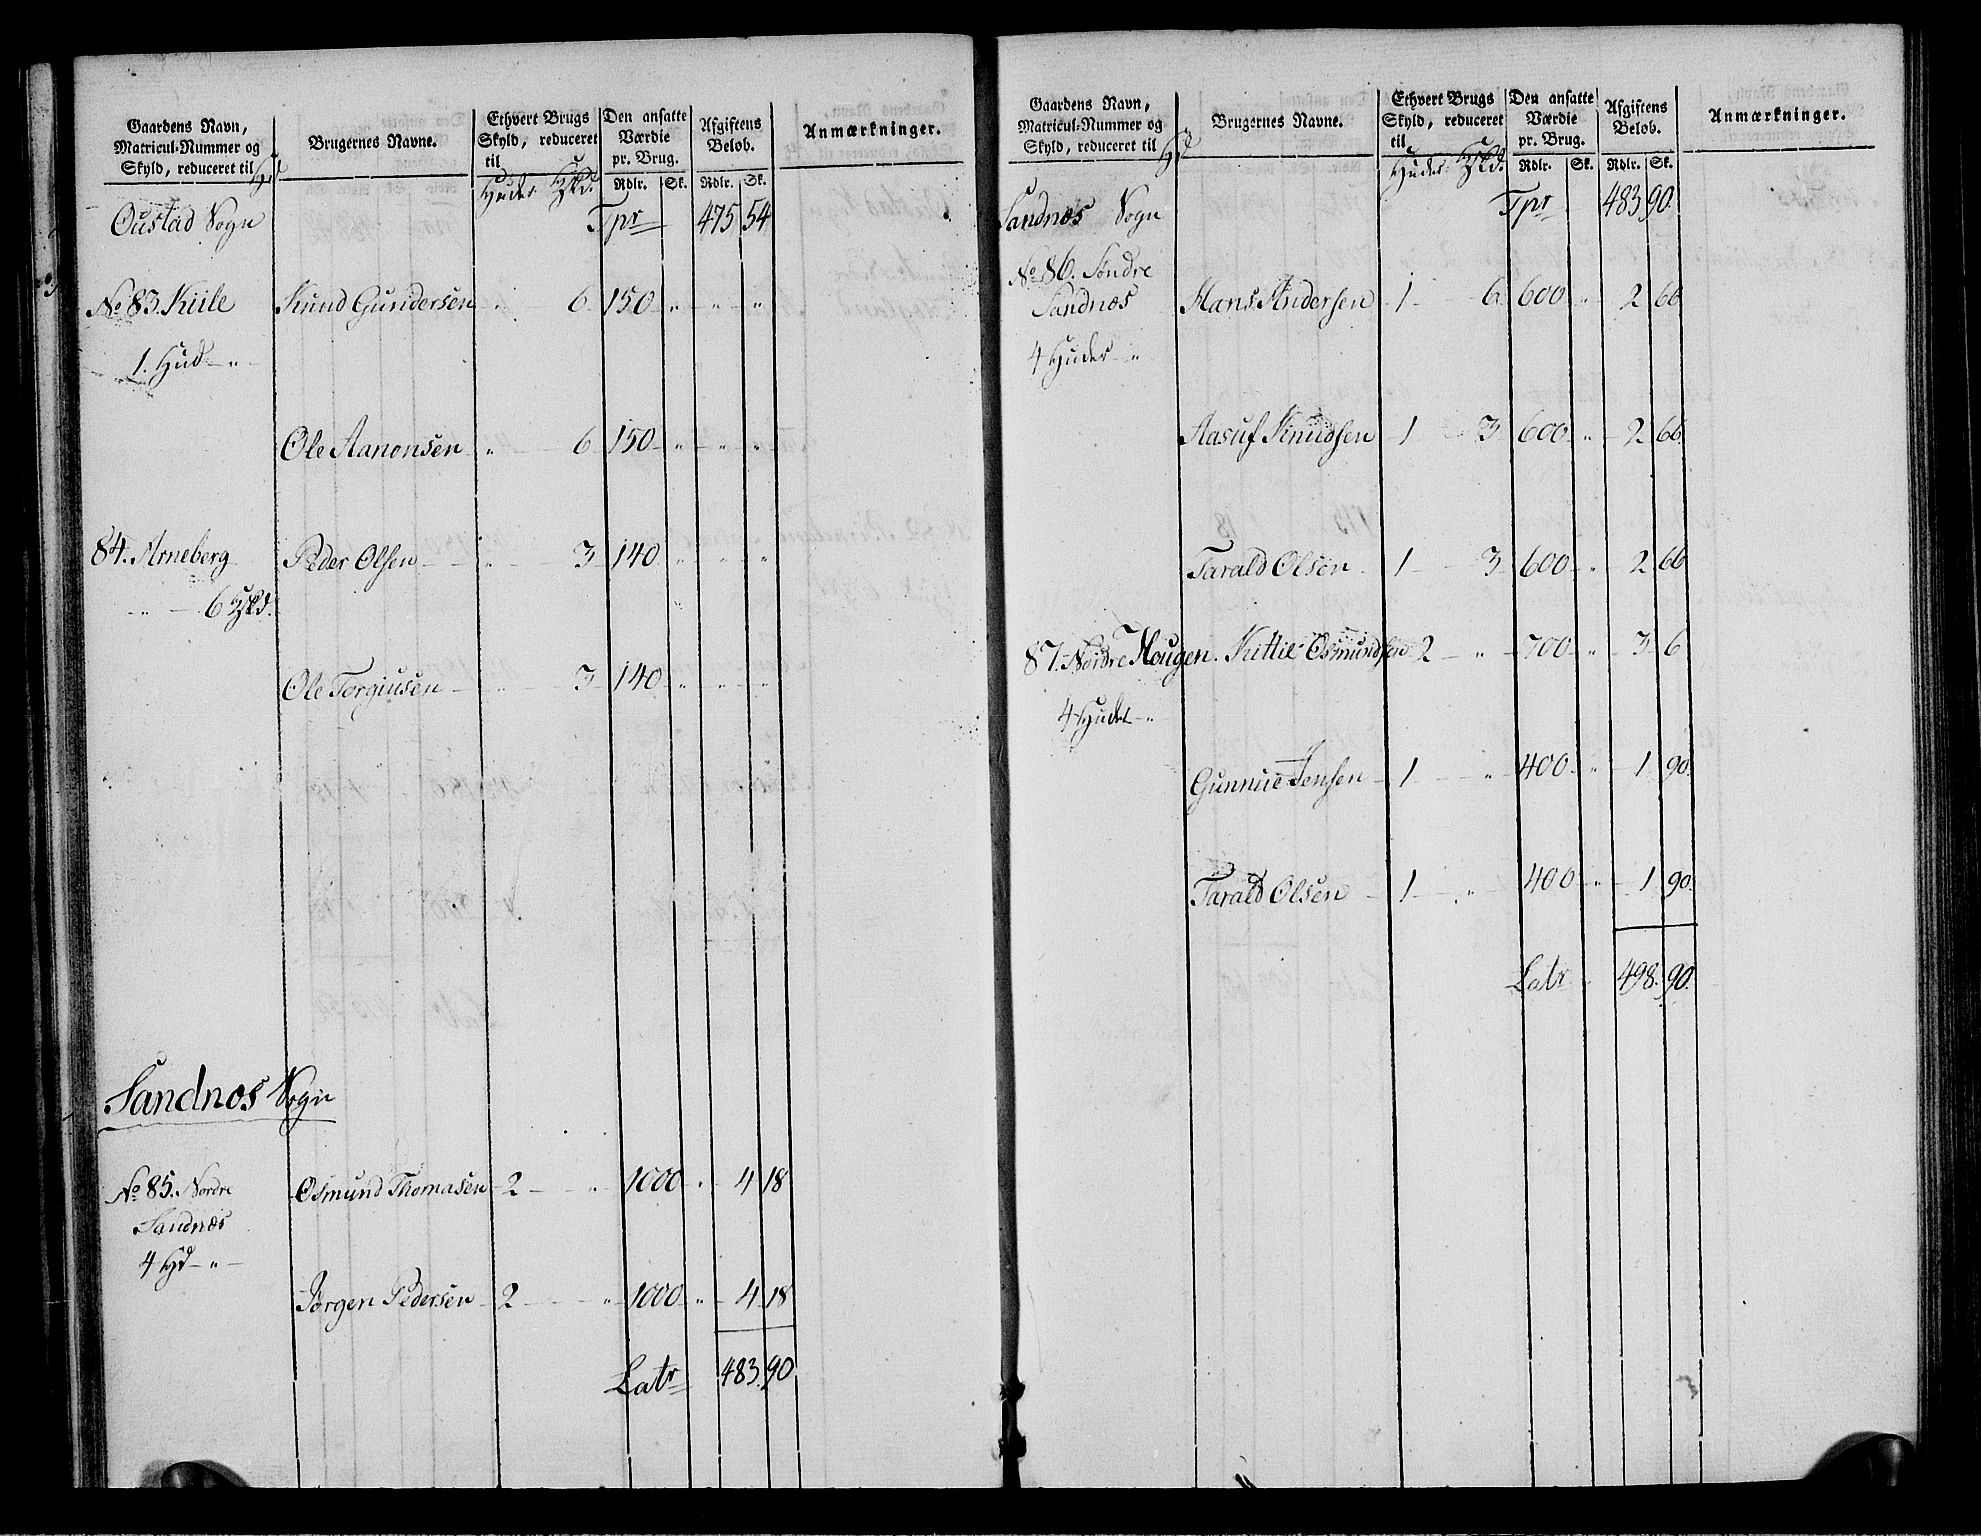 Gaardens Navn, Matricul-Nummer og Skyld, reduceret til Hd | Brugernes Navne. | Ethvert Brugs Skyld, reduceret til Huder | Den ansatte Værdie pr. Brug. Rdlr. Sk. | Afgiftens Beløb. Rdlr. Sk. | Anmærkninger.
Oustad Sogn Tpr 475 54
No 83. Kiile Knud Gundersen " 6 150 " " "
1. Hud "
Ole Aanonsen " 6 150 " " "
84. Arneberg Peder Olsen " 3 140 " " "
" 6
Ole Torgiusen " 3 140 " " "
Sandnæs Sogn
No 85. Nordre Osmund Thomasen 2 " 1000 " 4 18
Sandnæs
4 Hd "
Jørgen Pedersen 2 " 1000 " 4 18
Latr 483. 90
Gaardens Navn, Matricul-Nummer og Skyld, reduceret til Hd | Brugernes Navne. | Ethvert Brugs Skyld, reduceret til Huder | Den ansatte Værdie pr. Brug. Rdlr. Sk. | Afgiftens Beløb. Rdlr. Sk. | Anmærkninger.
Sandnæs Sogn Tpr 483 90.
No 86. Søndre
Sandnæs Hans Andersen 1 6 600 " 2 66
4 Huder "
Aasuf Knudsen 1 3 600 " 2 66
Tarald Olsen 1 3 600 " 2 66
87. Nordre Hougen. Kittil Osmundsen 2 " 700 " 3 6
4 Huder "
Gunnue Jensen 1 " 400 " 1 90.
Tarald Olsen 1 " 400 " 1 90.
Latr 498. 90.